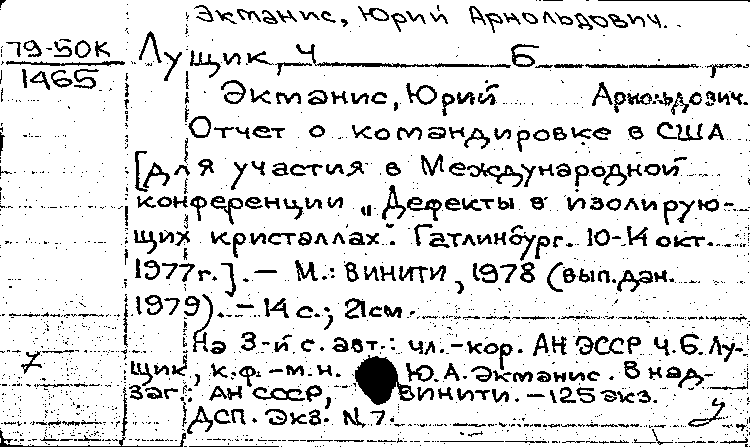 Экманис, Юрий Арнольдович.
79-50К
1465
Лущик, Ч Б ,
Экманис, Юрий Арнольдович.
Отчет о командировке в США
[для участия в Международной
конференции „Дефекты в изолирую-
щих кристаллах". Гатлинбург. 10-14 окт.
1977г.]. — М.: ВИНИТИ, 1978 (вып.дан.
1979). — 14 с.; 21см.
На 3-й с. авт.: чл.-кор. АН ЭССР Ч.Б.Лу-
щик, к.ф.-м.н. Ю.А.Экманис. В над-
заг.: АН СССР, ВИНИТИ. — 125 экз.
ДСП. Экз. N 7.
7
у